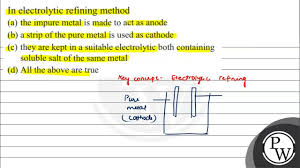 In electrolytic refining method
(a) the impure metal is made to act as anode
(b) a strip of the pure metal is used as cathode
(c) they are kept in a suitable electrolytic both containing
soluble salt of the same metal
(d) All the above are true
Key concept - Electrolytic refining
Pure
metal
(Cathode)
PW